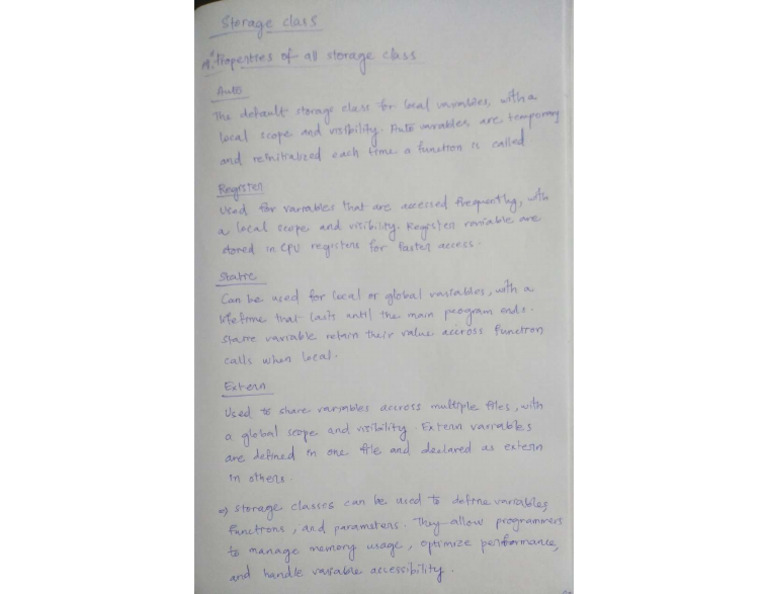 Storage class
Properties of all storage class
Auto
The default storage class for local variables, with a
local scope and visibility. Auto variables are temporary
and reinitialized each time a function is called
Register
Used for variables that are accessed frequently, with
a local scope and visibility. Register variable are
stored in CPU registers for faster access.
Static
Can be used for local or global variables, with a
lifetime that lasts until the main program ends.
Static variable retain their value accross function
calls when local.
Extern
Used to share variables accross multiple files, with
a global scope and visibility. Extern variables
are defined in one file and declared as extern
in others.
⇒ Storage classes can be used to define variables,
functions, and parameters. They allow programmers
to manage memory usage, optimize performance,
and handle variable accessibility.